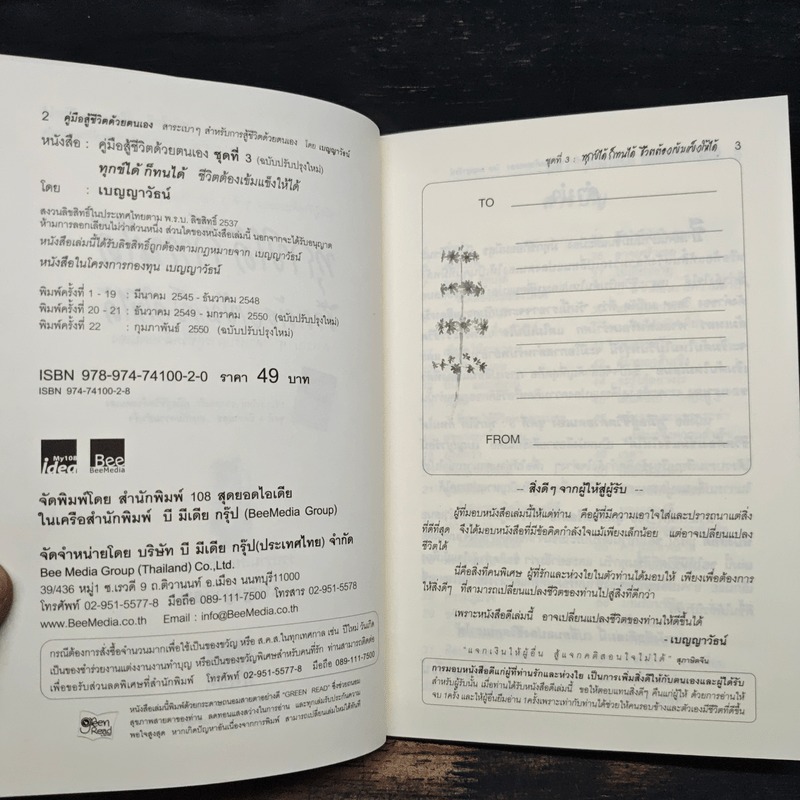 2 คู่มือสู้ชีวิตด้วยตนเอง สาระเบาๆ สำหรับการสู้ชีวิตด้วยตนเอง โดย เบญญาวัธน์
หนังสือ : คู่มือสู้ชีวิตด้วยตนเอง ชุดที่ 3 (ฉบับปรับปรุงใหม่)
ทุกข์ได้ ก็ทนได้ ชีวิตต้องเข้มแข็งให้ได้
โดย : เบญญาวัธน์
สงวนลิขสิทธิ์ในประเทศไทยตาม พ.ร.บ. ลิขสิทธิ์ 2537
ห้ามการลอกเลียนไม่ว่าส่วนหนึ่ง ส่วนใดของหนังสือเล่มนี้ นอกจากจะได้รับอนุญาต
หนังสือเล่มนี้ได้รับลิขสิทธิ์ถูกต้องตามกฎหมายจาก เบญญาวัธน์
หนังสือในโครงการกองทุน เบญญาวัธน์
พิมพ์ครั้งที่ 1 - 19 : มีนาคม 2545 - ธันวาคม 2548
พิมพ์ครั้งที่ 20 - 21 : ธันวาคม 2549 - มกราคม 2550 (ฉบับปรับปรุงใหม่)
พิมพ์ครั้งที่ 22 : กุมภาพันธ์ 2550 (ฉบับปรับปรุงใหม่)
ISBN 978-974-74100-2-0 ราคา 49 บาท
ISBN 974-74100-2-8
My108 idea
Bee BeeMedia
จัดพิมพ์โดย สำนักพิมพ์ 108 สุดยอดไอเดีย
ในเครือสำนักพิมพ์ บี มีเดีย กรุ๊ป (BeeMedia Group)
จัดจำหน่ายโดย บริษัท บี มีเดีย กรุ๊ป(ประเทศไทย) จำกัด
Bee Media Group (Thailand) Co.,Ltd.
39/436 หมู่1 ซ.เรวดี 9 ถ.ติวานนท์ อ.เมือง นนทบุรี11000
โทรศัพท์ 02-951-5577-8 มือถือ 089-111-7500 โทรสาร 02-951-5578
www.BeeMedia.co.th Email : info@BeeMedia.co.th
กรณีต้องการสั่งซื้อจำนวนมากเพื่อใช้เป็นของขวัญ หรือ ส.ค.ส.ในทุกเทศกาล เช่น ปีใหม่ วันเกิด
เป็นของชำร่วยงานแต่งงานงานทำบุญ หรือเป็นของขวัญพิเศษสำหรับคนที่รัก ท่านสามารถติดต่อ
เพื่อขอรับส่วนลดพิเศษที่สำนักพิมพ์ โทรศัพท์ 02-951-5577-8 มือถือ 089-111-7500
Green Read
หนังสือเล่มนี้พิมพ์ด้วยกระดาษถนอมสายตาอย่างดี "GREEN READ" ซึ่งช่วยถนอม
สุขภาพสายตาของท่าน ลดทอนแสงสว่างในการอ่าน และทุกเล่มรับประกันความ
พอใจสูงสุด หากเกิดปัญหาอันเนื่องจากการพิมพ์ สามารถเปลี่ยนเล่มใหม่ได้ทันที
ชุดที่ 3 : ทุกข์ได้ ก็ทนได้ ชีวิตต้องเข้มแข็งให้ได้ 3
TO
FROM
-- สิ่งดีๆ จากผู้ให้สู่ผู้รับ --
ผู้ที่มอบหนังสือเล่มนี้ให้แด่ท่าน คือผู้ที่มีความเอาใจใส่และปรารถนาแต่สิ่ง
ที่ดีที่สุด จึงได้มอบหนังสือที่มีข้อคิดกำลังใจแม้เพียงเล็กน้อย แต่อาจเปลี่ยนแปลง
ชีวิตได้
นี่คือสิ่งที่คนพิเศษ ผู้ที่รักและห่วงใยในตัวท่านได้มอบให้ เพียงเพื่อต้องการ
ให้สิ่งดีๆ ที่สามารถเปลี่ยนแปลงชีวิตของท่านไปสู่สิ่งที่ดีกว่า
เพราะหนังสือดีเล่มนี้ อาจเปลี่ยนแปลงชีวิตของท่านให้ดีขึ้นได้
- เบญญาวัธน์
"แจกเงินให้ผู้อื่น สู้แจกคติสอนใจไม่ได้" สุภาษิตจีน
การมอบหนังสือดีแก่ผู้ที่ท่านรักและห่วงใย เป็นการเพิ่มสิ่งดีให้กับตนเองและผู้ได้รับ
สำหรับผู้รับนั้น เมื่อท่านได้รับหนังสือดีเล่มนี้ ขอให้ตอบแทนสิ่งดีๆ คืนแก่ผู้ให้ ด้วยการอ่านให้
จบ 1ครั้ง และให้ผู้อื่นยืมอ่าน 1ครั้งเพราะเท่ากับท่านได้ช่วยให้คนรอบข้างและตัวเองมีชีวิตที่ดีขึ้น